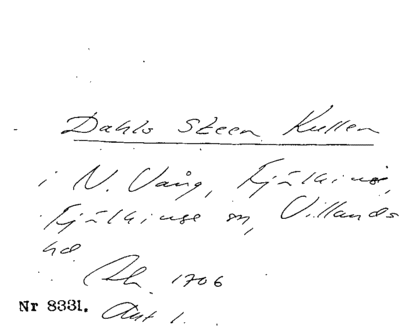 Dahls Steen Kullen
i N. Vång, Fjälkinge,
Fjälkinge sn, Villands
hd
Ah. 1706
Nr 8331. Akt 1.